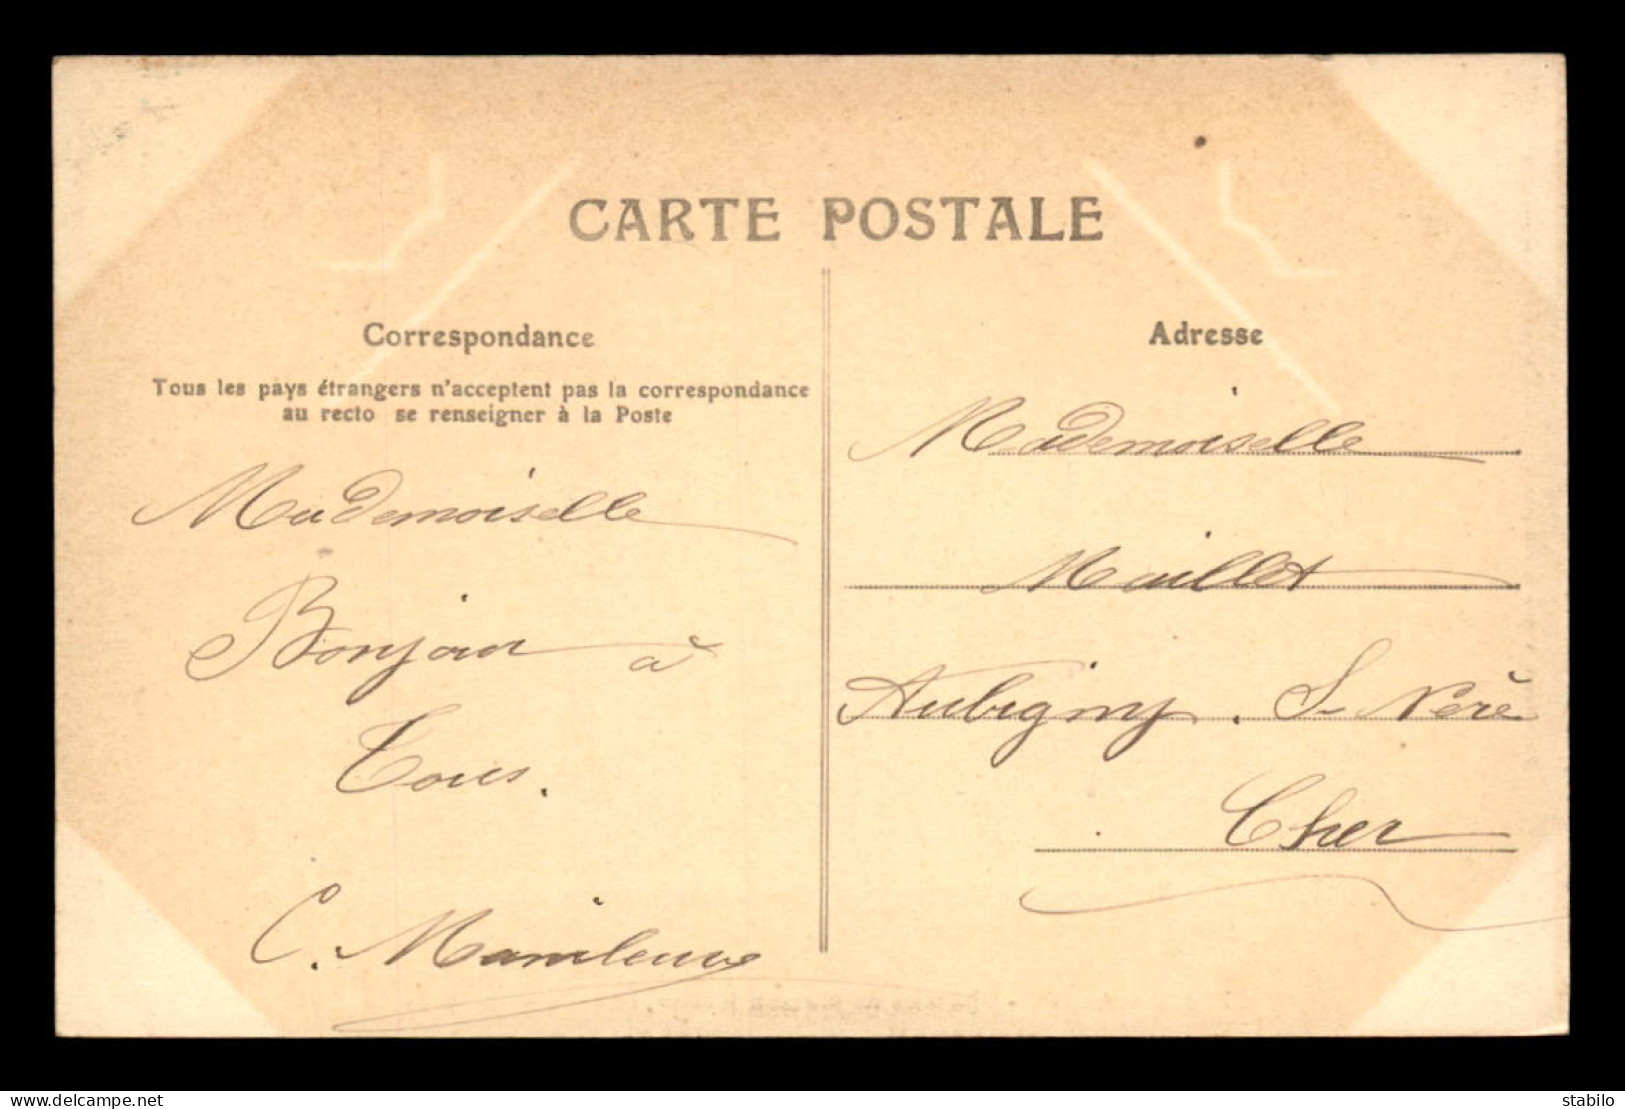 CARTE POSTALE
Correspondance
Tous les pays étrangers n'acceptent pas la correspondance
au recto se renseigner à la Poste
Mademoiselle
Bonjour à
Tous.
C.
Adresse
Mademoiselle
Maillet
Aubigny. S- Nère
Cher
delcampe.net
stabilo